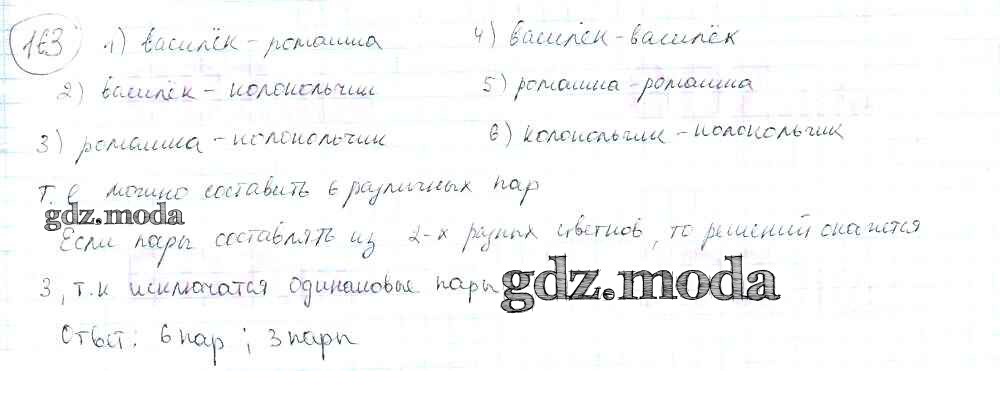 163 1) василёк - ромашка 4) василёк - василёк
2) василёк - колокольчик 5) ромашка - ромашка
3) ромашка - колокольчик 6) колокольчик - колокольчик
т.е можно составить 6 различных пар
gdz.moda
Если пары составлять из 2-х разных цветков, то решений окажется
3, т.к исключатся одинаковые пары
gdz.moda
Ответ: 6 пар ; 3 пары